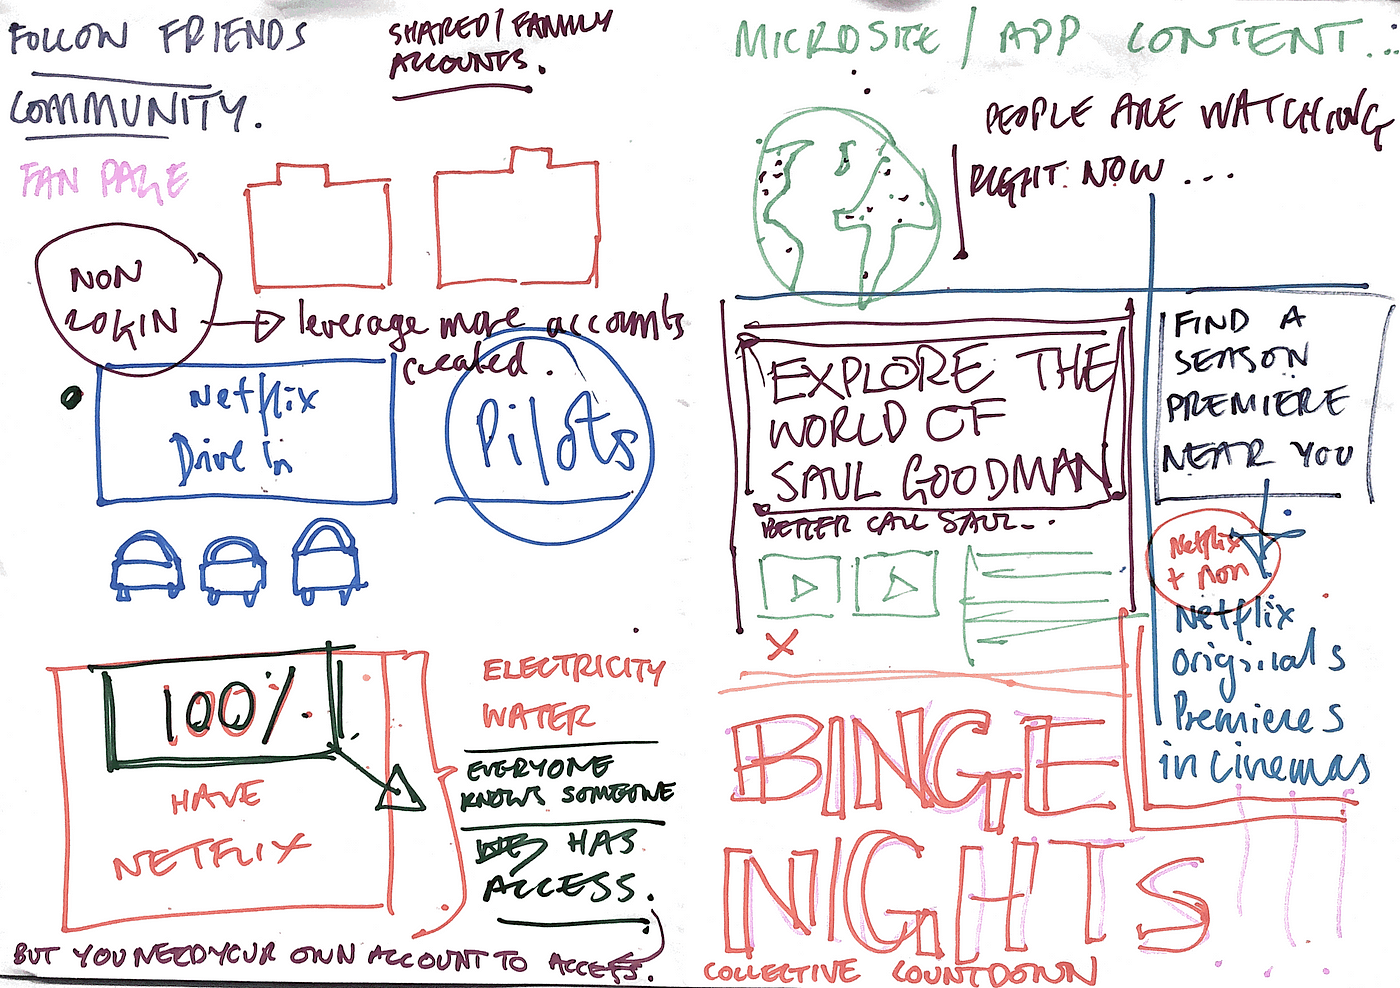 FOLLOW FRIENDS
COMMUNITY.
FAN PAGE
SHARED / FAMILY
ACCOUNTS.
NON
LOGIN
leverage more accounts
created.
Netflix
Drive In
Pilots
100%
HAVE
NETFLIX
ELECTRICITY
WATER
EVERYONE
KNOWS SOMEONE
HAS
ACCESS.
BUT YOU NEED YOUR OWN ACCOUNT TO ACCESS.
MICROSITE / APP CONTENT...
PEOPLE ARE WATCHING
RIGHT NOW ...
EXPLORE THE
WORLD OF
SAUL GOODMAN
BETTER CALL SAUL...
X
FIND A
SEASON
PREMIERE
NEAR YOU
Netflix
+ non
Netflix
originals
Premieres
in Cinemas
BINGE
NIGHTS
COLLECTIVE COUNTDOWN